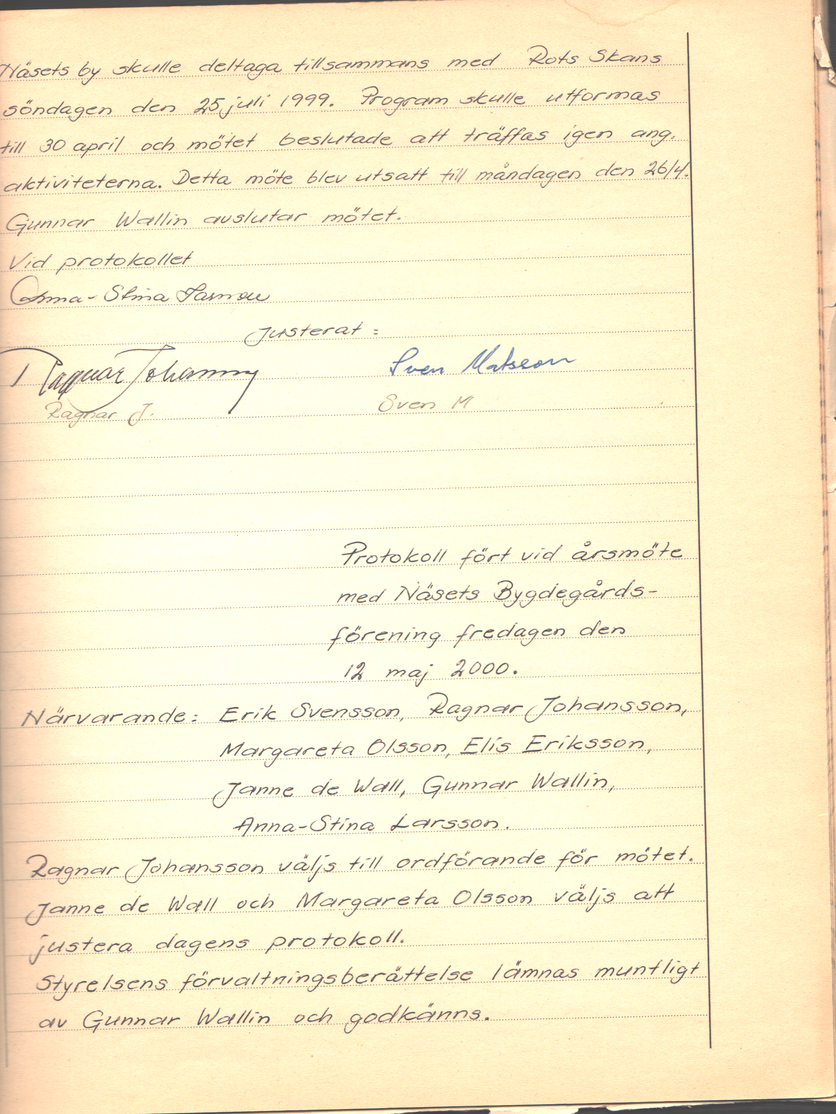 Näsets by skulle deltaga tillsammans med Rots Skans
söndagen den 25 juli 1999. Program skulle utformas
till 30 april och mötet beslutade att träffas igen ang.
aktiviteterna. Detta möte blev utsatt till måndagen den 26/4.
Gunnar Wallin avslutar mötet.
Vid protokollet
Anna-Stina Larsson
Justerat:
Ragnar Johansson Sven Matsson
Ragnar J. Sven M
Protokoll fört vid årsmöte
med Näsets Bygdegårds-
förening fredagen den
12 maj 2000.
Närvarande: Erik Svensson, Ragnar Johansson,
Margareta Olsson, Elis Eriksson,
Janne de Wall, Gunnar Wallin,
Anna-Stina Larsson.
Ragnar Johansson väljs till ordförande för mötet.
Janne de Wall och Margareta Olsson väljs att
justera dagens protokoll.
Styrelsens förvaltningsberättelse lämnas muntligt
av Gunnar Wallin och godkänns.